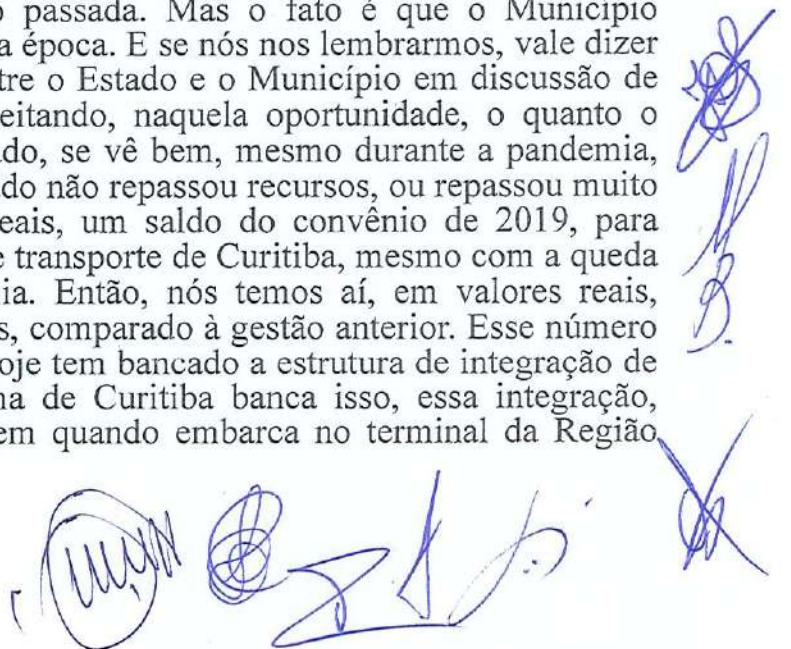 passada. Mas o fato é que o Município
a época. E se nós nos lembrarmos, vale dizer
tre o Estado e o Município em discussão de
eitando, naquela oportunidade, o quanto o
do, se vê bem, mesmo durante a pandemia,
do não repassou recursos, ou repassou muito
eais, um saldo do convênio de 2019, para
e transporte de Curitiba, mesmo com a queda
ia. Então, nós temos aí, em valores reais,
s, comparado à gestão anterior. Esse número
oje tem bancado a estrutura de integração de
na de Curitiba banca isso, essa integração,
em quando embarca no terminal da Região